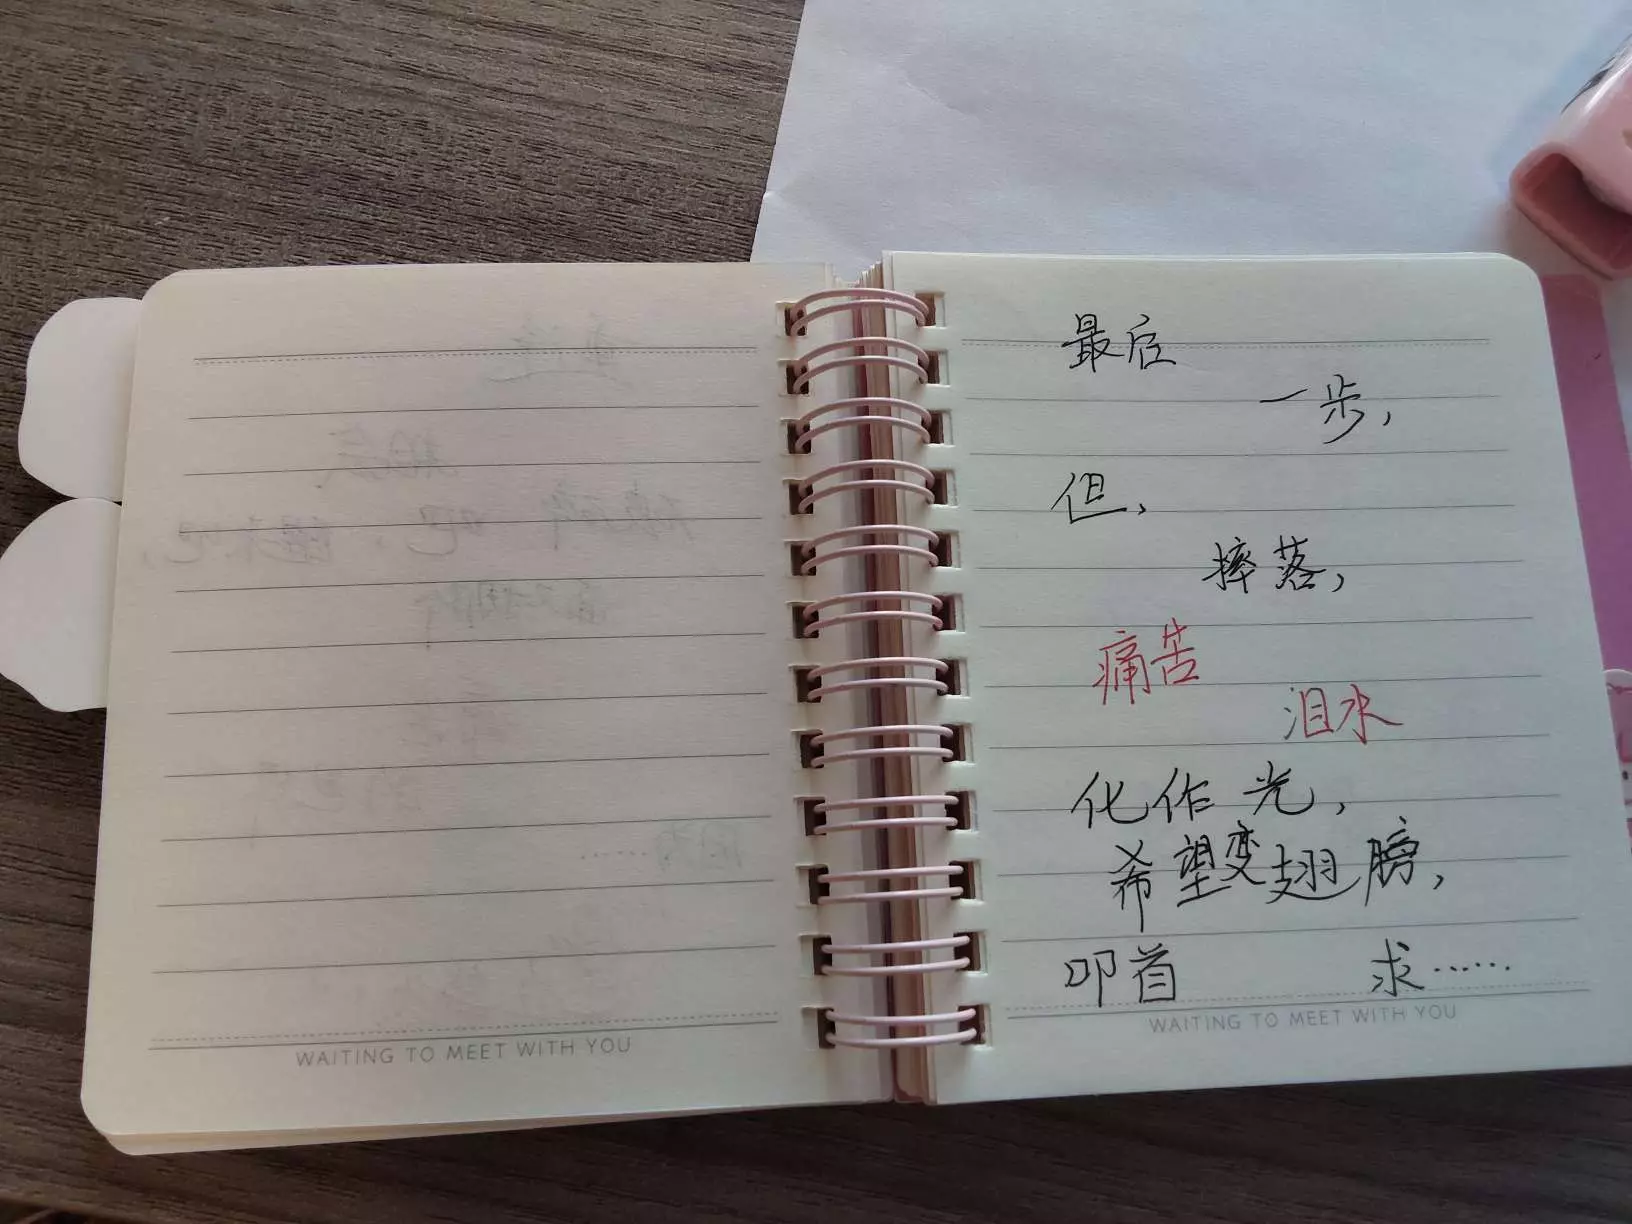 最后
一步，
但，
摔落，
痛苦
泪水
化作光，
希望变翅膀，
叩首 求……
WAITING TO MEET WITH YOU
WAITING TO MEET WITH YOU